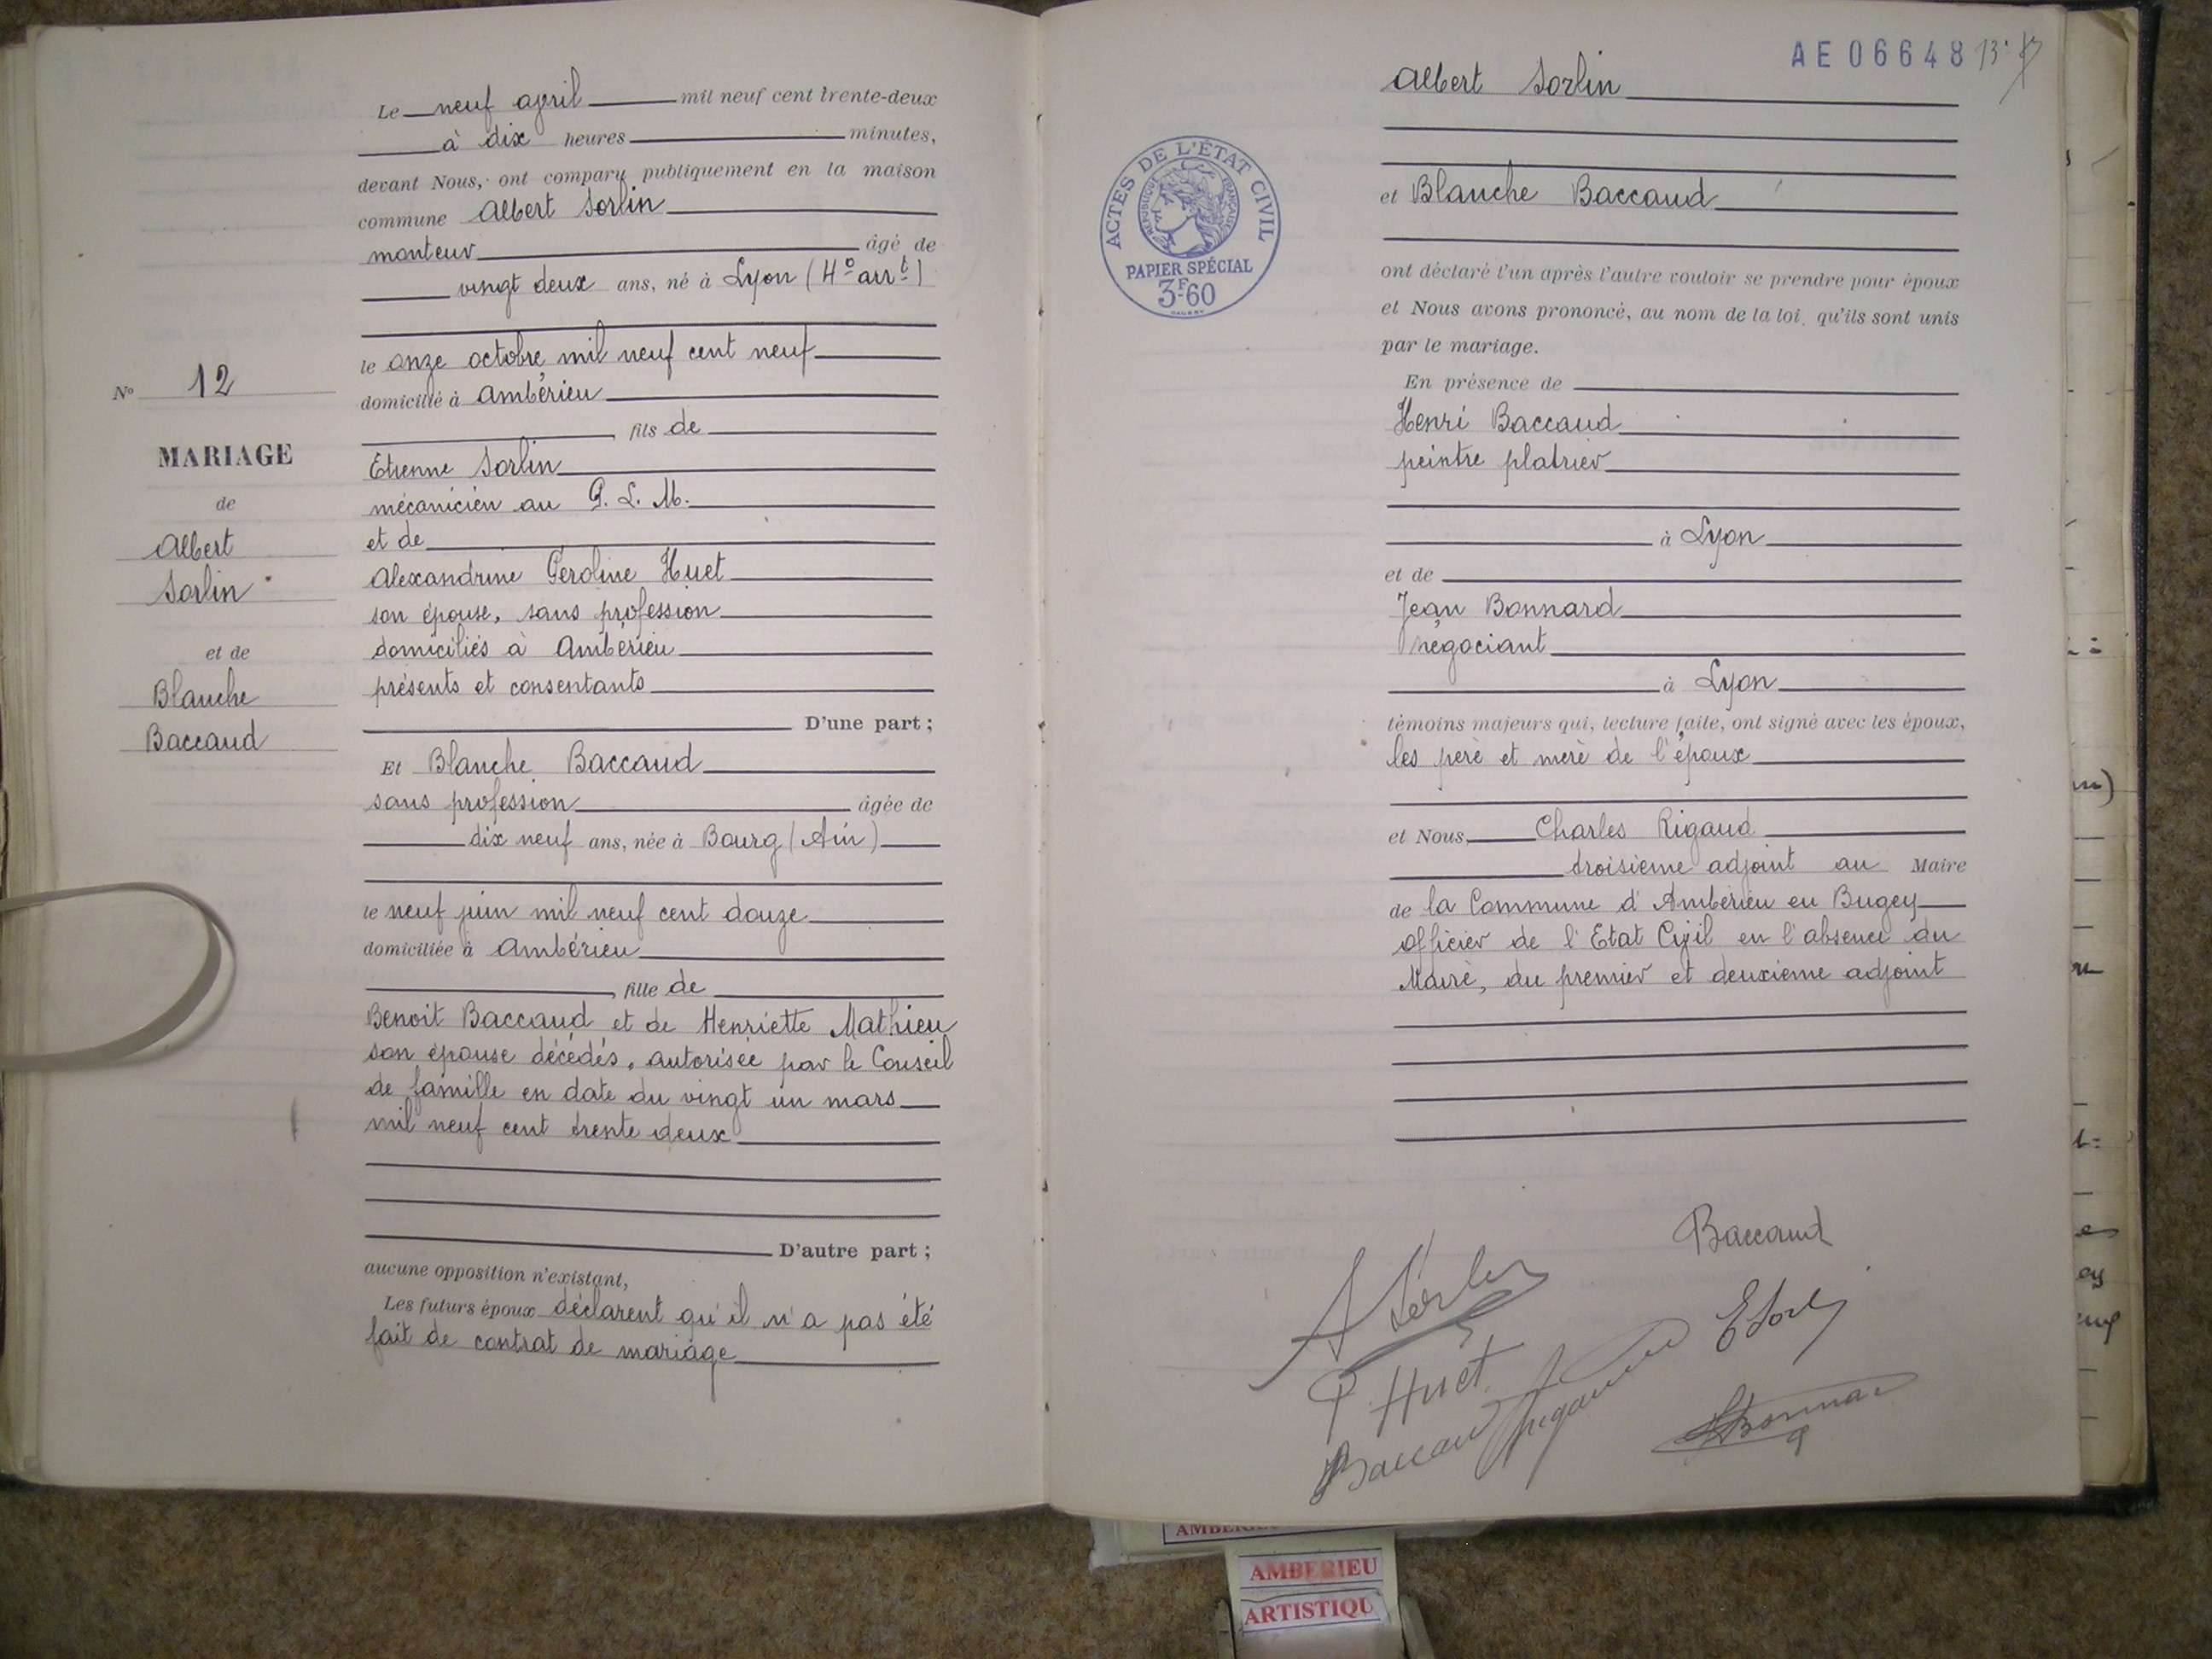 Le neuf avril mil neuf cent trente-deux
à dix heures minutes,
devant Nous, ont comparu publiquement en la maison
commune Albert Sorlin
monteur âgé de
vingt deux ans, né à Lyon (4e arrt)
le onze octobre mil neuf cent neuf
domicilié à Ambérieu
fils de
Etienne Sorlin
mécanicien au P. L. M.
et de
Alexandrine Péroline Huet
son épouse, sans profession
domiciliés à Ambérieu
présents et consentants
D'une part ;
Et Blanche Baccaud
sans profession âgée de
dix neuf ans, née à Bourg (Ain)
le neuf juin mil neuf cent douze
domiciliée à Ambérieu
, fille de
Benoit Baccaud et de Henriette Mathieu
son épouse décédés, autorisée par le Conseil
de famille en date du vingt un mars
mil neuf cent trente deux
D'autre part ;
aucune opposition n'existant,
Les futurs époux déclarent qu'il n'a pas été
fait de contrat de mariage
No 12
MARIAGE
de
Albert
Sorlin
et de
Blanche
Baccaud
AE 06648
Albert Sorlin
et Blanche Baccaud
ont déclaré l'un après l'autre vouloir se prendre pour époux
et Nous avons prononcé, au nom de la loi, qu'ils sont unis
par le mariage.
En présence de
Henri Baccaud
peintre platrier
à Lyon
et de
Jean Bonnard
négociant
à Lyon
témoins majeurs qui, lecture faite, ont signé avec les époux,
les père et mère de l'époux
et Nous, Charles Rigaud
troisième adjoint au Maire
de la Commune d'Ambérieu en Bugey
officier de l'Etat Civil en l'absence du
Maire, du premier et deuxième adjoint
ACTES DE L'ÉTAT CIVIL
RÉPUBLIQUE FRANÇAISE
PAPIER SPÉCIAL
3F60
Baccaud
A Sorlin
P Huet
Baccaud
AMBERIEU
ARTISTIQU